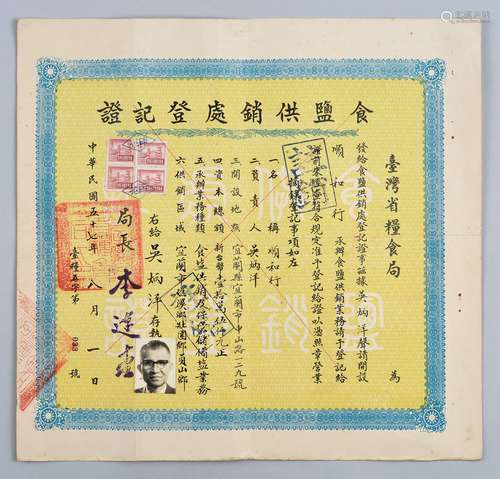 食鹽供銷處登記證
臺灣省糧食局 為
發給食鹽供銷處登記證事茲據吳炳洋聲請開設
順和行 承辦食鹽供銷業務請予登記給
證前來經審核合規定准予登記給證以憑照章營業
登記事項如左
一名 稱 順和行
二負責人 吳炳洋
三開設地點 宜蘭縣宜蘭市中山路一二九號
四資本總額 新台幣
元正
五承辦業務種類 食鹽供銷及保管儲備鹽業務
六供銷區域 宜蘭市
壯圍鄉員山鄉
右給 吳炳洋 存執
局長 李
中華民國五十七年 八月 一日
臺糧 字第 033 號